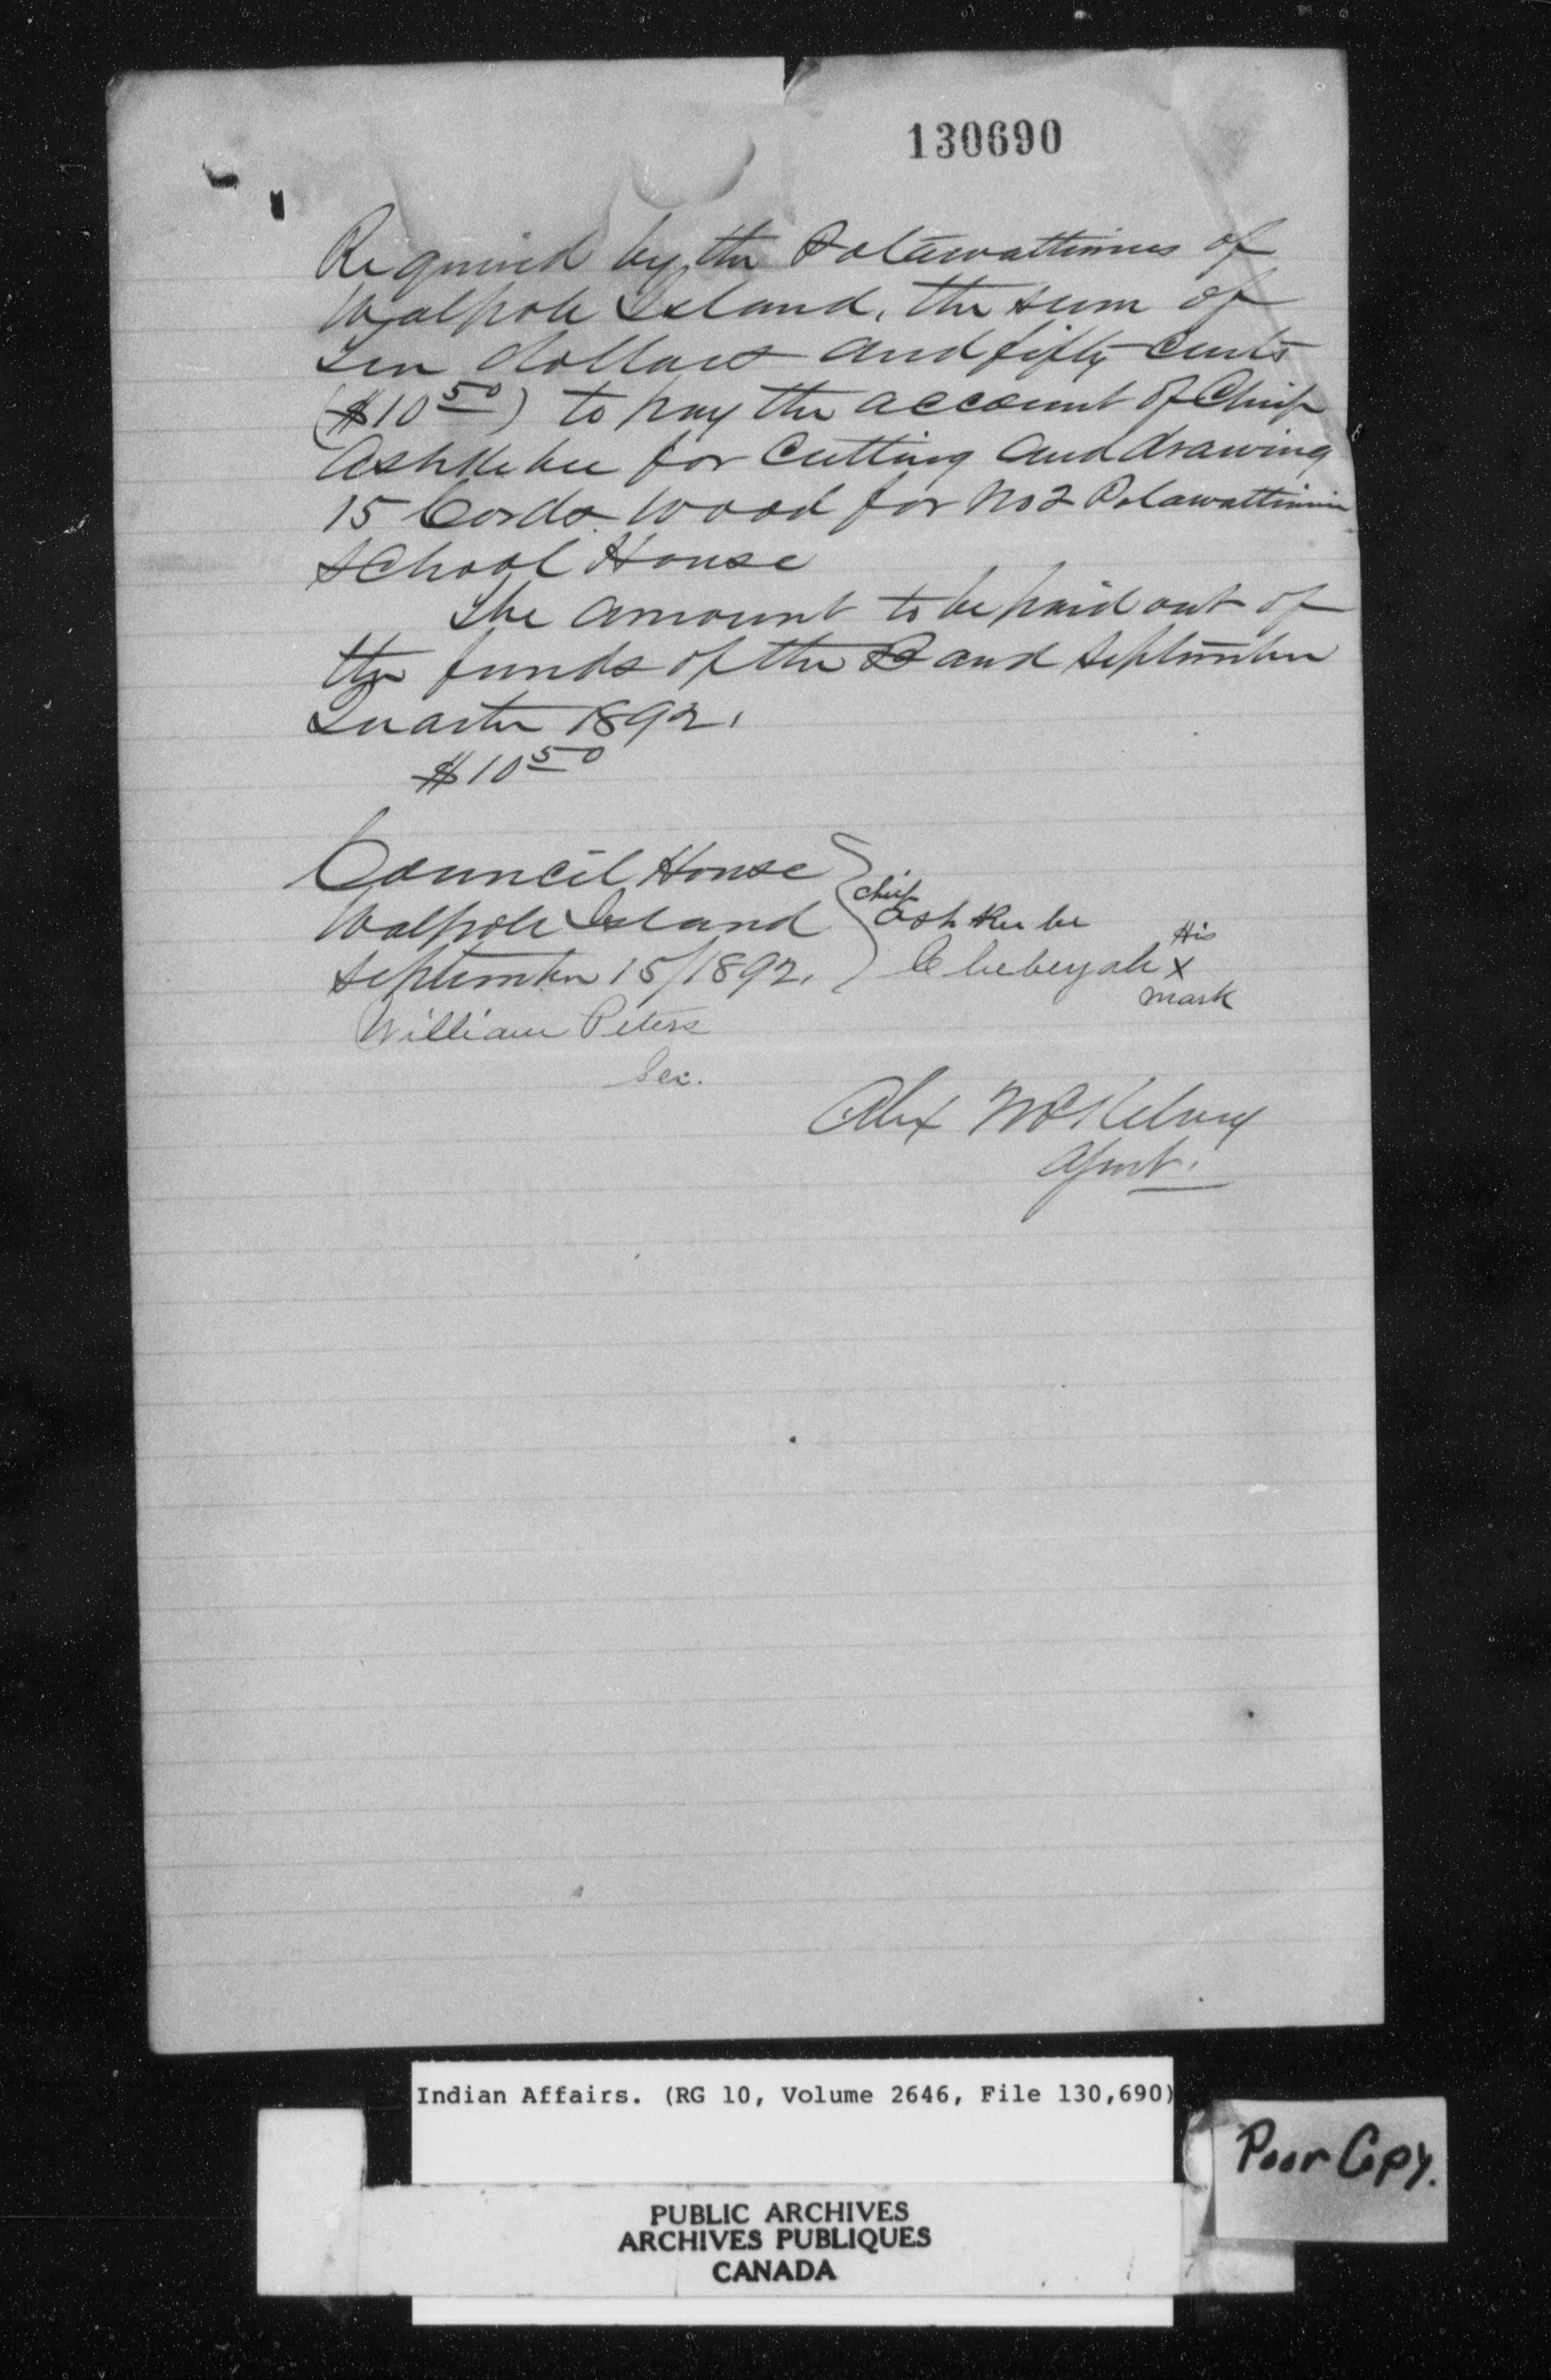 130690
Required by the Potawattimies of
Walpole Island, the sum of
Ten dollars and fifty cents
($10 50) to pay the account of Chief
Ashkebee for Cutting and drawing
15 Cords wood for No 2 Potawattimie
School House
The amount to be paid out of
the funds of the Band September
Quarter 1892.
$10 50
Council House
Walpole Island
September 15/1892.
Chief
Ashkeebe
His
Chebeyah X
mark
William Peters
Sec.
Alex McKelvey
Agent.
Indian Affairs. (RG 10, Volume 2646, File 130,690)
Poor Copy.
PUBLIC ARCHIVES
ARCHIVES PUBLIQUES
CANADA